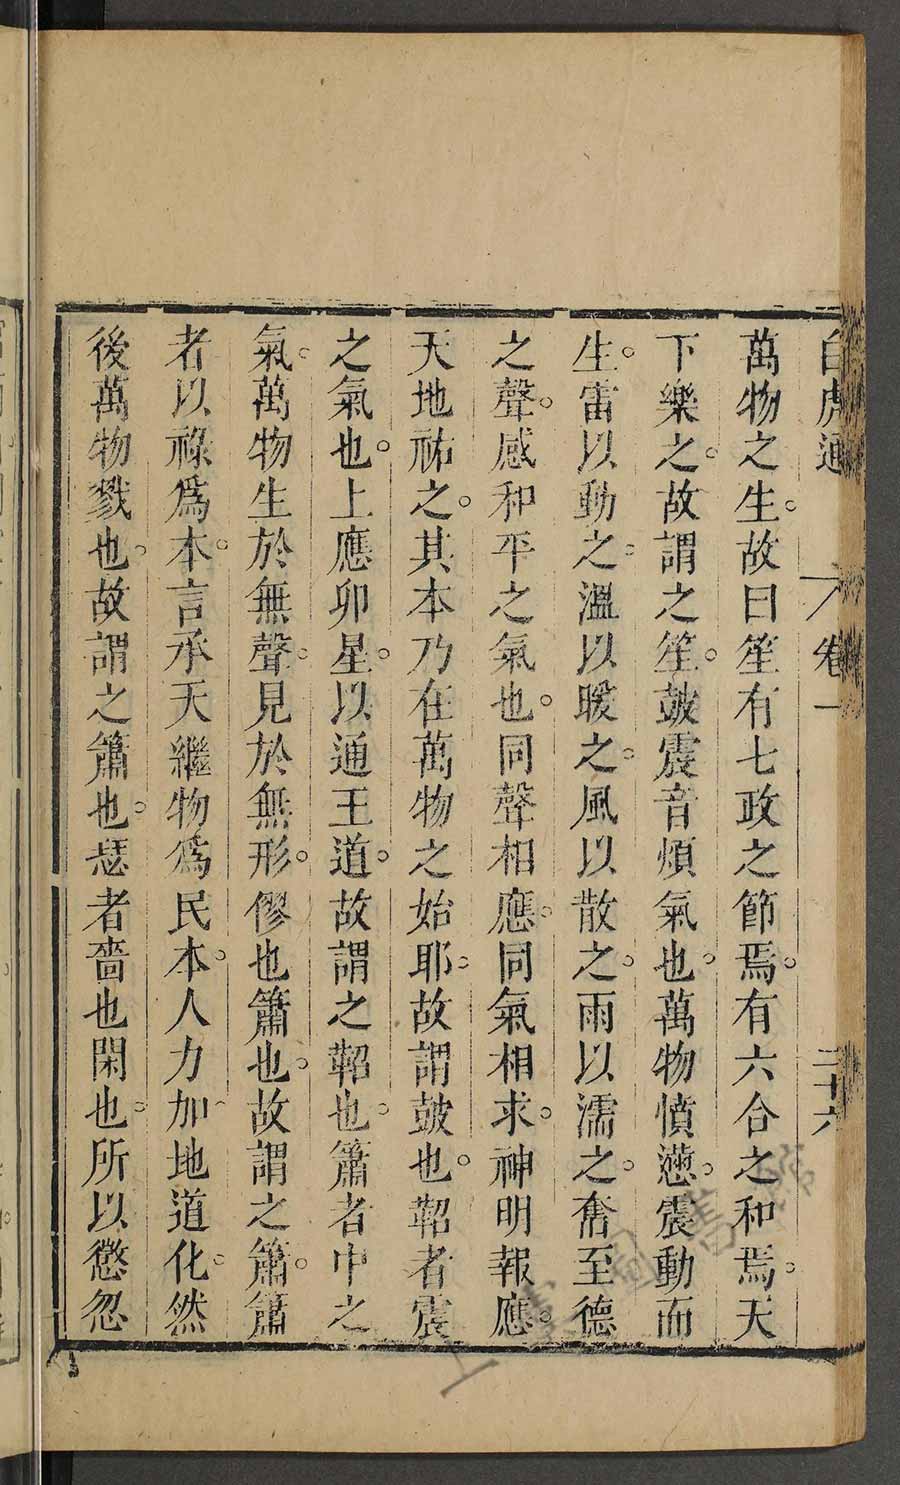 白虎通 卷一 二十六
萬物之生。故曰笙有七政之節焉。有六合之和焉。天
下樂之。故謂之笙。鼓震音煩氣也。萬物憤懣。震動而
生。雷以動之。溫以暖之。風以散之。雨以濡之。奮至德
之聲。感和平之氣也。同聲相應。同氣相求。神明報應。
天地祐之。其本乃在萬物之始耶。故謂鼓也。鞀者震
之氣也。上應卯星。以通王道。故謂之鞀也。簫者中之
氣。萬物生於無聲。見於無形。僇也簫也。故謂之簫。簫
者以祿爲本。言承天繼物爲民本。人力加地道化。然
後萬物戮也。故謂之簫也。瑟者嗇也閑也。所以懲忽